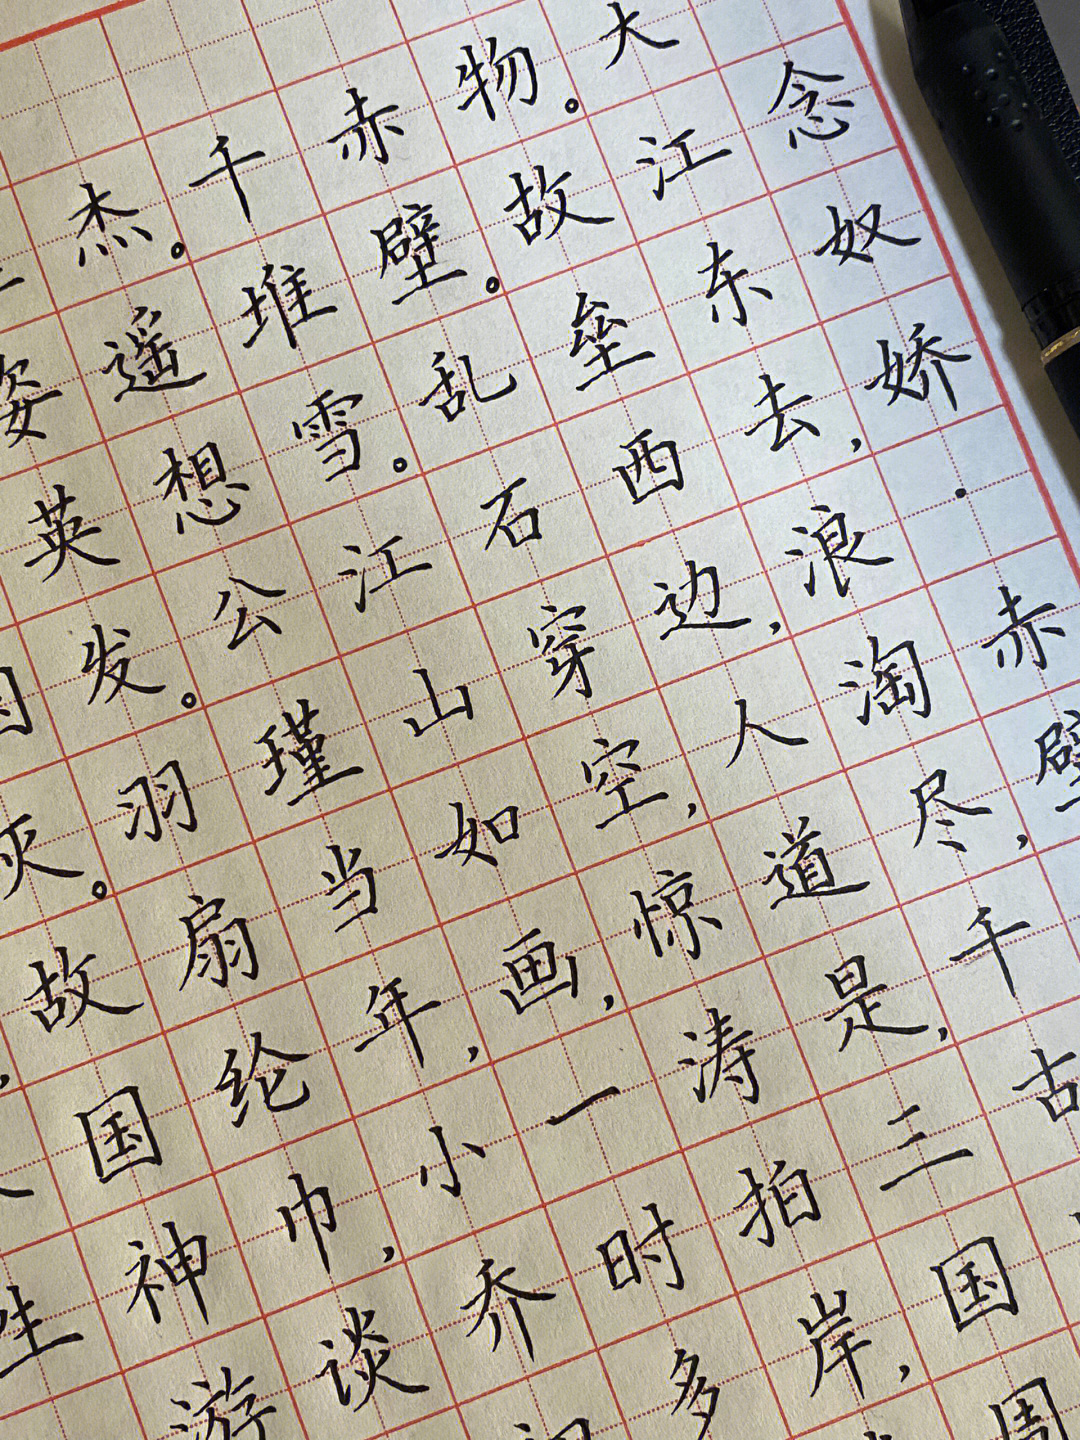 念奴娇·赤壁
大江东去，浪淘尽，千古
物。故垒西边，人道是，三国周
赤壁。乱石穿空，惊涛拍岸，
千堆雪。江山如画，一时多
杰。遥想公瑾当年，小乔
姿英发。羽扇纶巾，谈
灰。故国神游